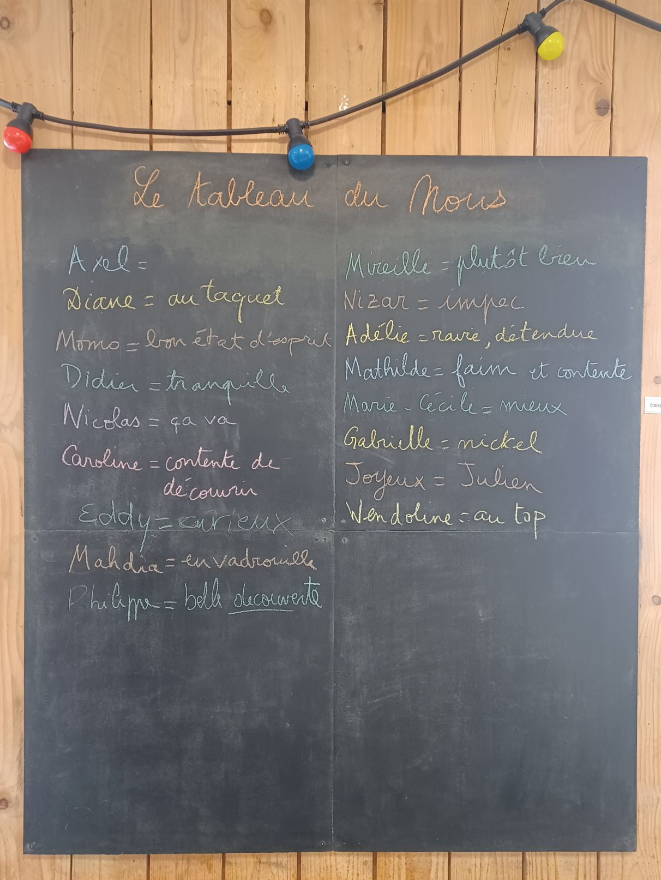 Le tableau du Nous
Axel =
Diane = au taquet
Momo = bon état d'esprit
Didier = tranquille
Nicolas = ça va
Caroline = contente de
découvrir
Eddy = curieux
Mahdia = en vadrouille
Philippe = belle découverte
Mireille = plutôt bien
Nizar = impec
Adélie = ravie, détendue
Mathilde = faim et contente
Marie-Cécile = mieux
Gabrielle = nickel
Joyeux = Julien
Wendoline = au top